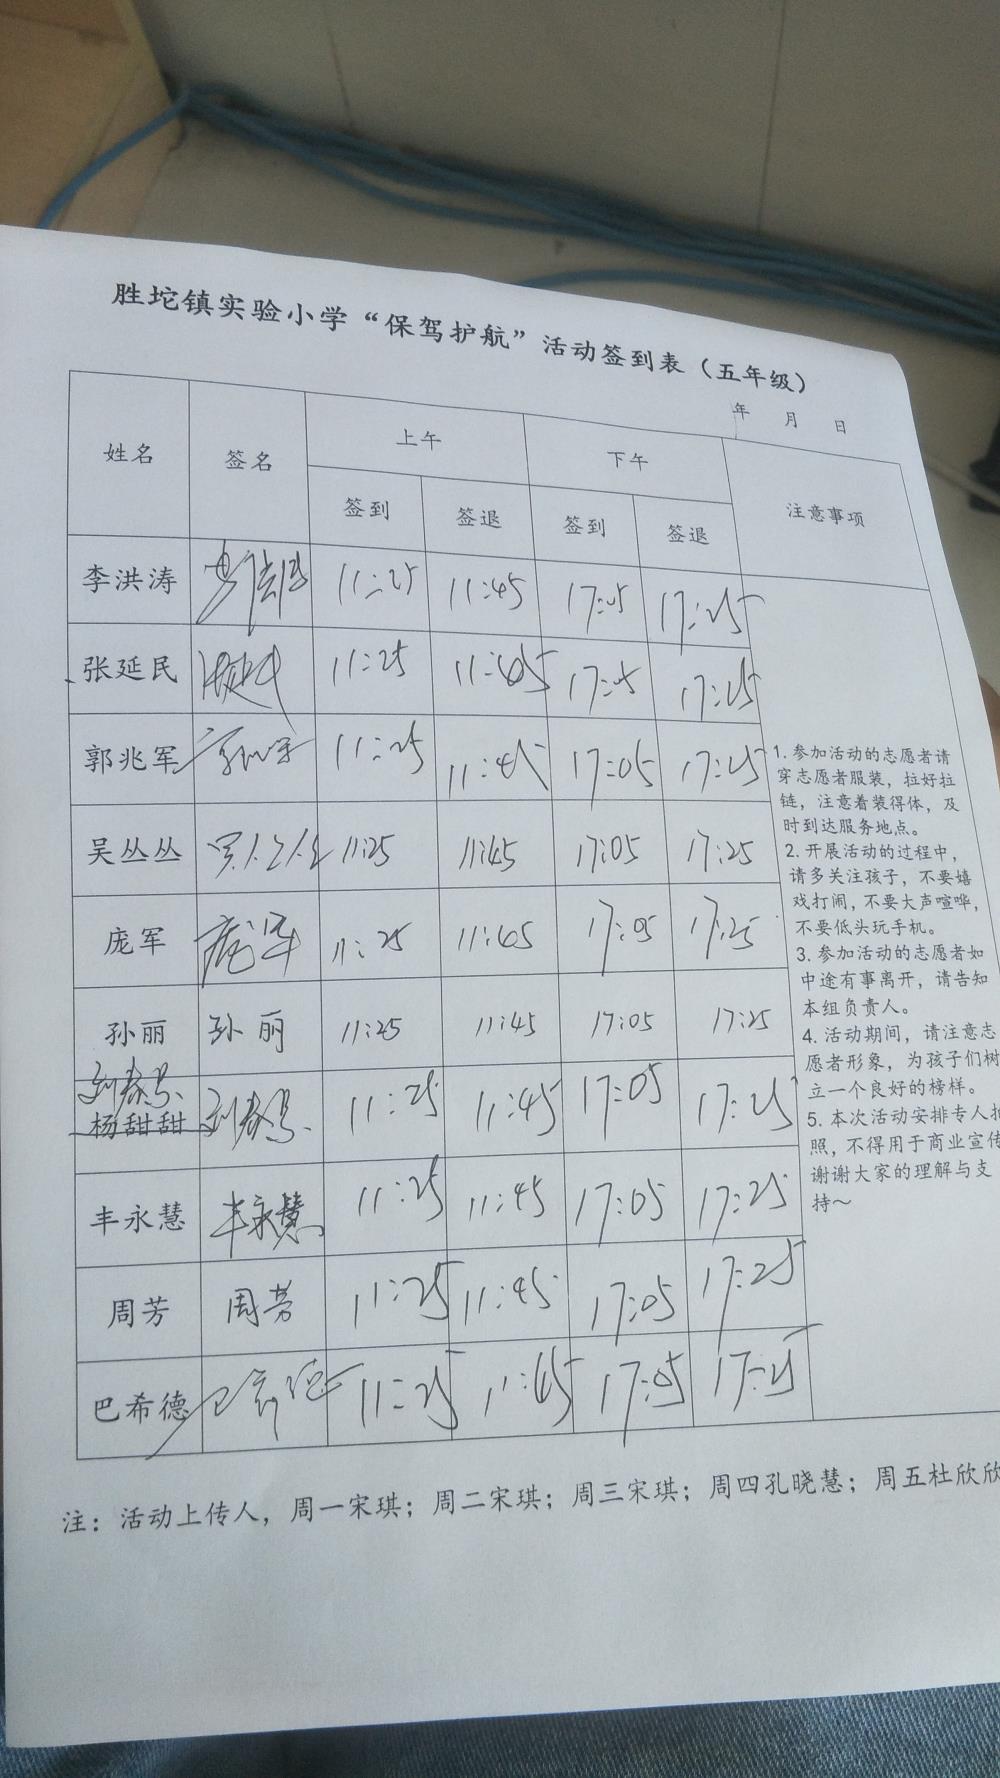 胜坨镇实验小学“保驾护航”活动签到表（五年级）
年 月 日
姓名 签名 上午 下午 注意事项
签到 签退 签到 签退
李洪涛 李洪涛 11:25 11:45 17:05 17:25
张延民 张延民 11:25 11:45 17:05 17:25
郭兆军 11:25 11:45 17:05 17:25
吴丛丛 吴丛丛 11:25 11:45 17:05 17:25
庞军 庞军 11:25 11:45 17:05 17:25
孙丽 孙丽 11:25 11:45 17:05 17:25
杨甜甜 11:25 11:45 17:05 17:25
丰永慧 丰永慧 11:25 11:45 17:05 17:25
周芳 周芳 11:25 11:45 17:05 17:25
巴希德 巴希德 11:25 11:45 17:05 17:25
1. 参加活动的志愿者请
穿志愿者服装，拉好拉
链，注意着装得体，及
时到达服务地点。
2. 开展活动的过程中，
请多关注孩子，不要嬉
戏打闹，不要大声喧哗，
不要低头玩手机。
3. 参加活动的志愿者如
中途有事离开，请告知
本组负责人。
4. 活动期间，请注意志
愿者形象，为孩子们树
立一个良好的榜样。
5. 本次活动安排专人拍
照，不得用于商业宣传
谢谢大家的理解与支
持～
注：活动上传人，周一宋琪；周二宋琪；周三宋琪；周四孔晓慧；周五杜欣欣